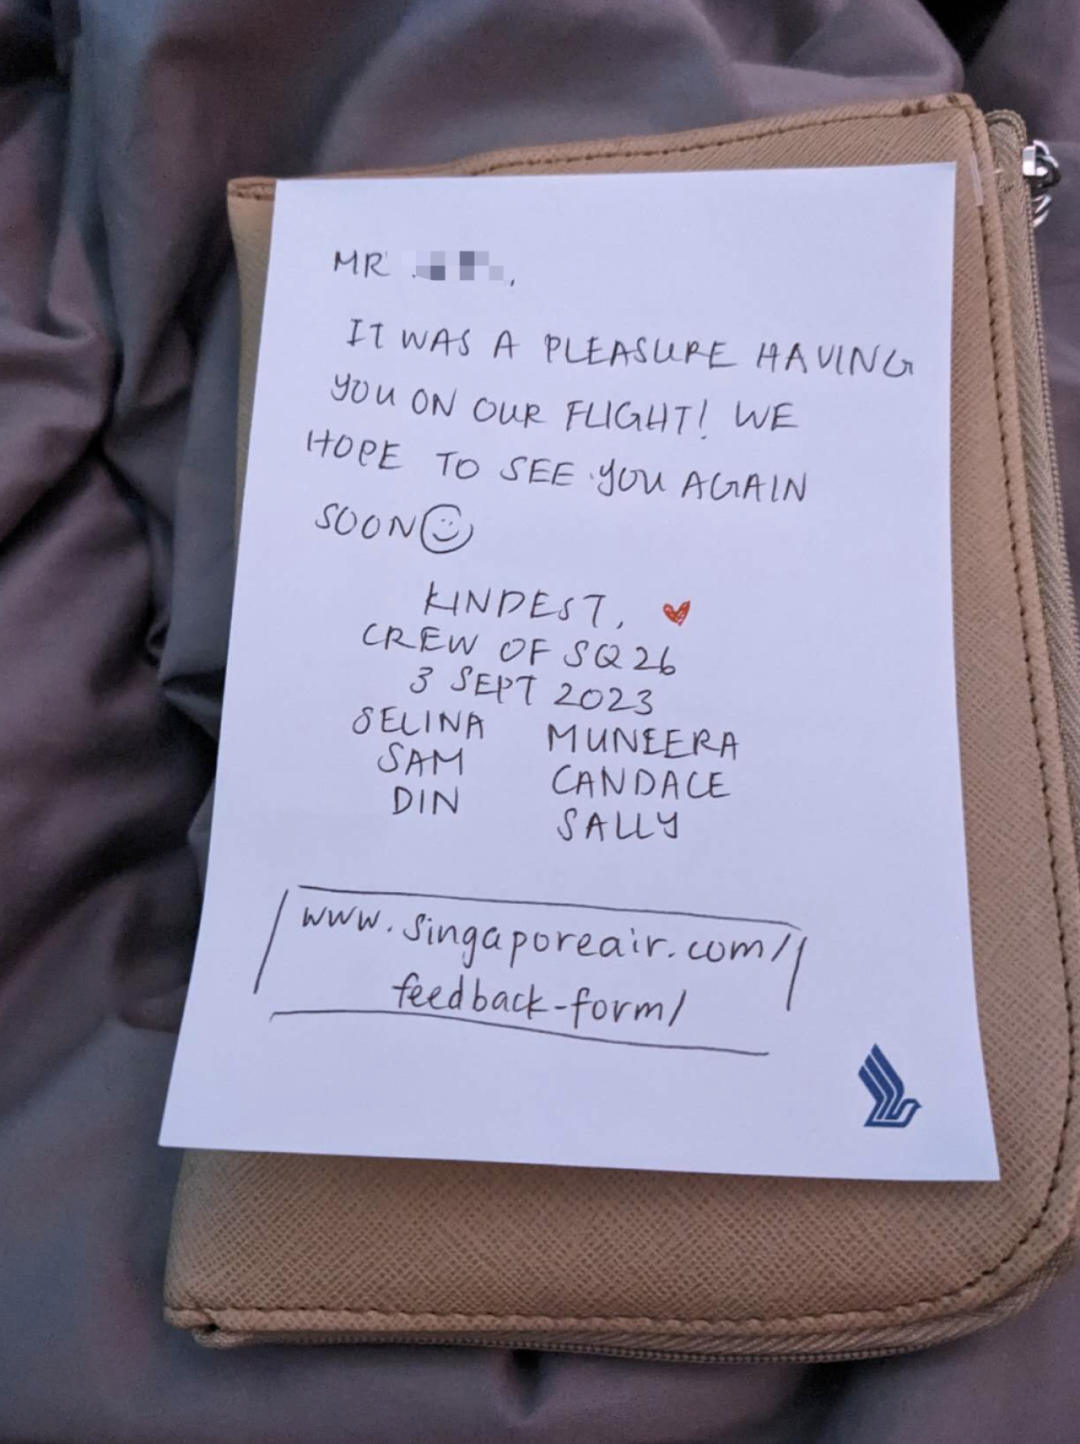 MR ,
IT WAS A PLEASURE HAVING
YOU ON OUR FLIGHT! WE
HOPE TO SEE YOU AGAIN
SOON ☺
KINDEST, ♥
CREW OF SQ26
3 SEPT 2023
SELINA MUNEERA
SAM CANDACE
DIN SALLY
www.singaporeair.com/
feedback-form/